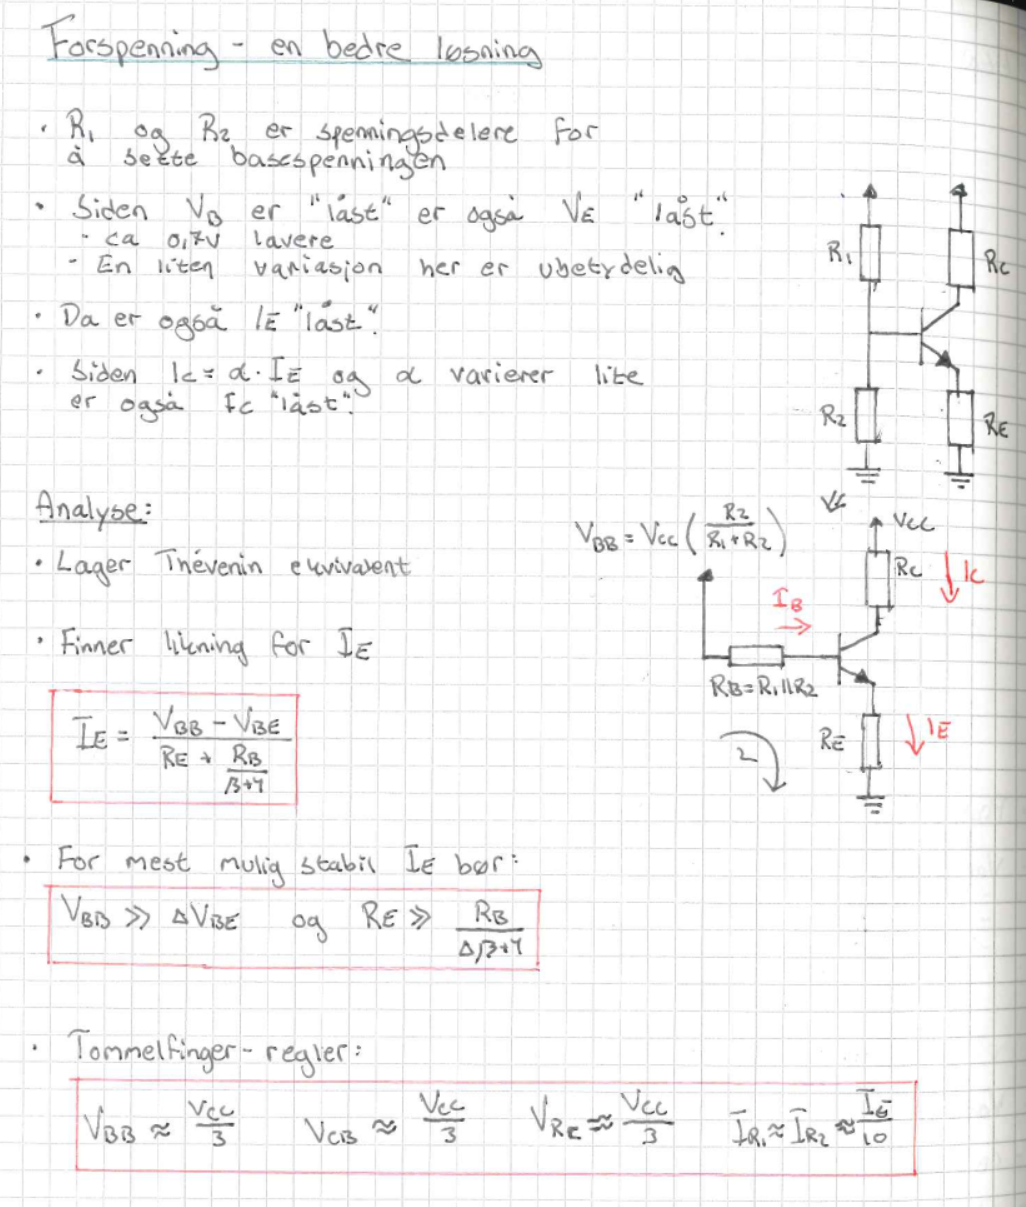 Forspenning - en bedre løsning
• R₁ og R₂ er spenningsdelere for
å sette basespenningen
• Siden V_B er "låst" er også V_E "låst".
- ca 0,7V lavere
- En liten variasjon her er ubetydelig
• Da er også I_E "låst".
• Siden I_C = α · I_E og α varierer lite
er også I_C "låst".
R₁
R_C
R₂
R_E
Analyse:
• Lager Thévenin ekvivalent
• Finner likning for I_E
I_E = (V_BB - V_BE) / (R_E + R_B / (β+1))
V_BB = V_CC (R₂ / (R₁+R₂))
V_CC
R_C
I_C
I_B
R_B = R₁||R₂
R_E
I_E
L
• For mest mulig stabil I_E bør:
V_BB >> ΔV_BE og R_E >> R_B / (Δβ+1)
• Tommelfinger-regler:
V_BB ≈ V_CC / 3 V_CB ≈ V_CC / 3 V_RC ≈ V_CC / 3 I_R₁ ≈ I_R₂ ≈ I_E / 10